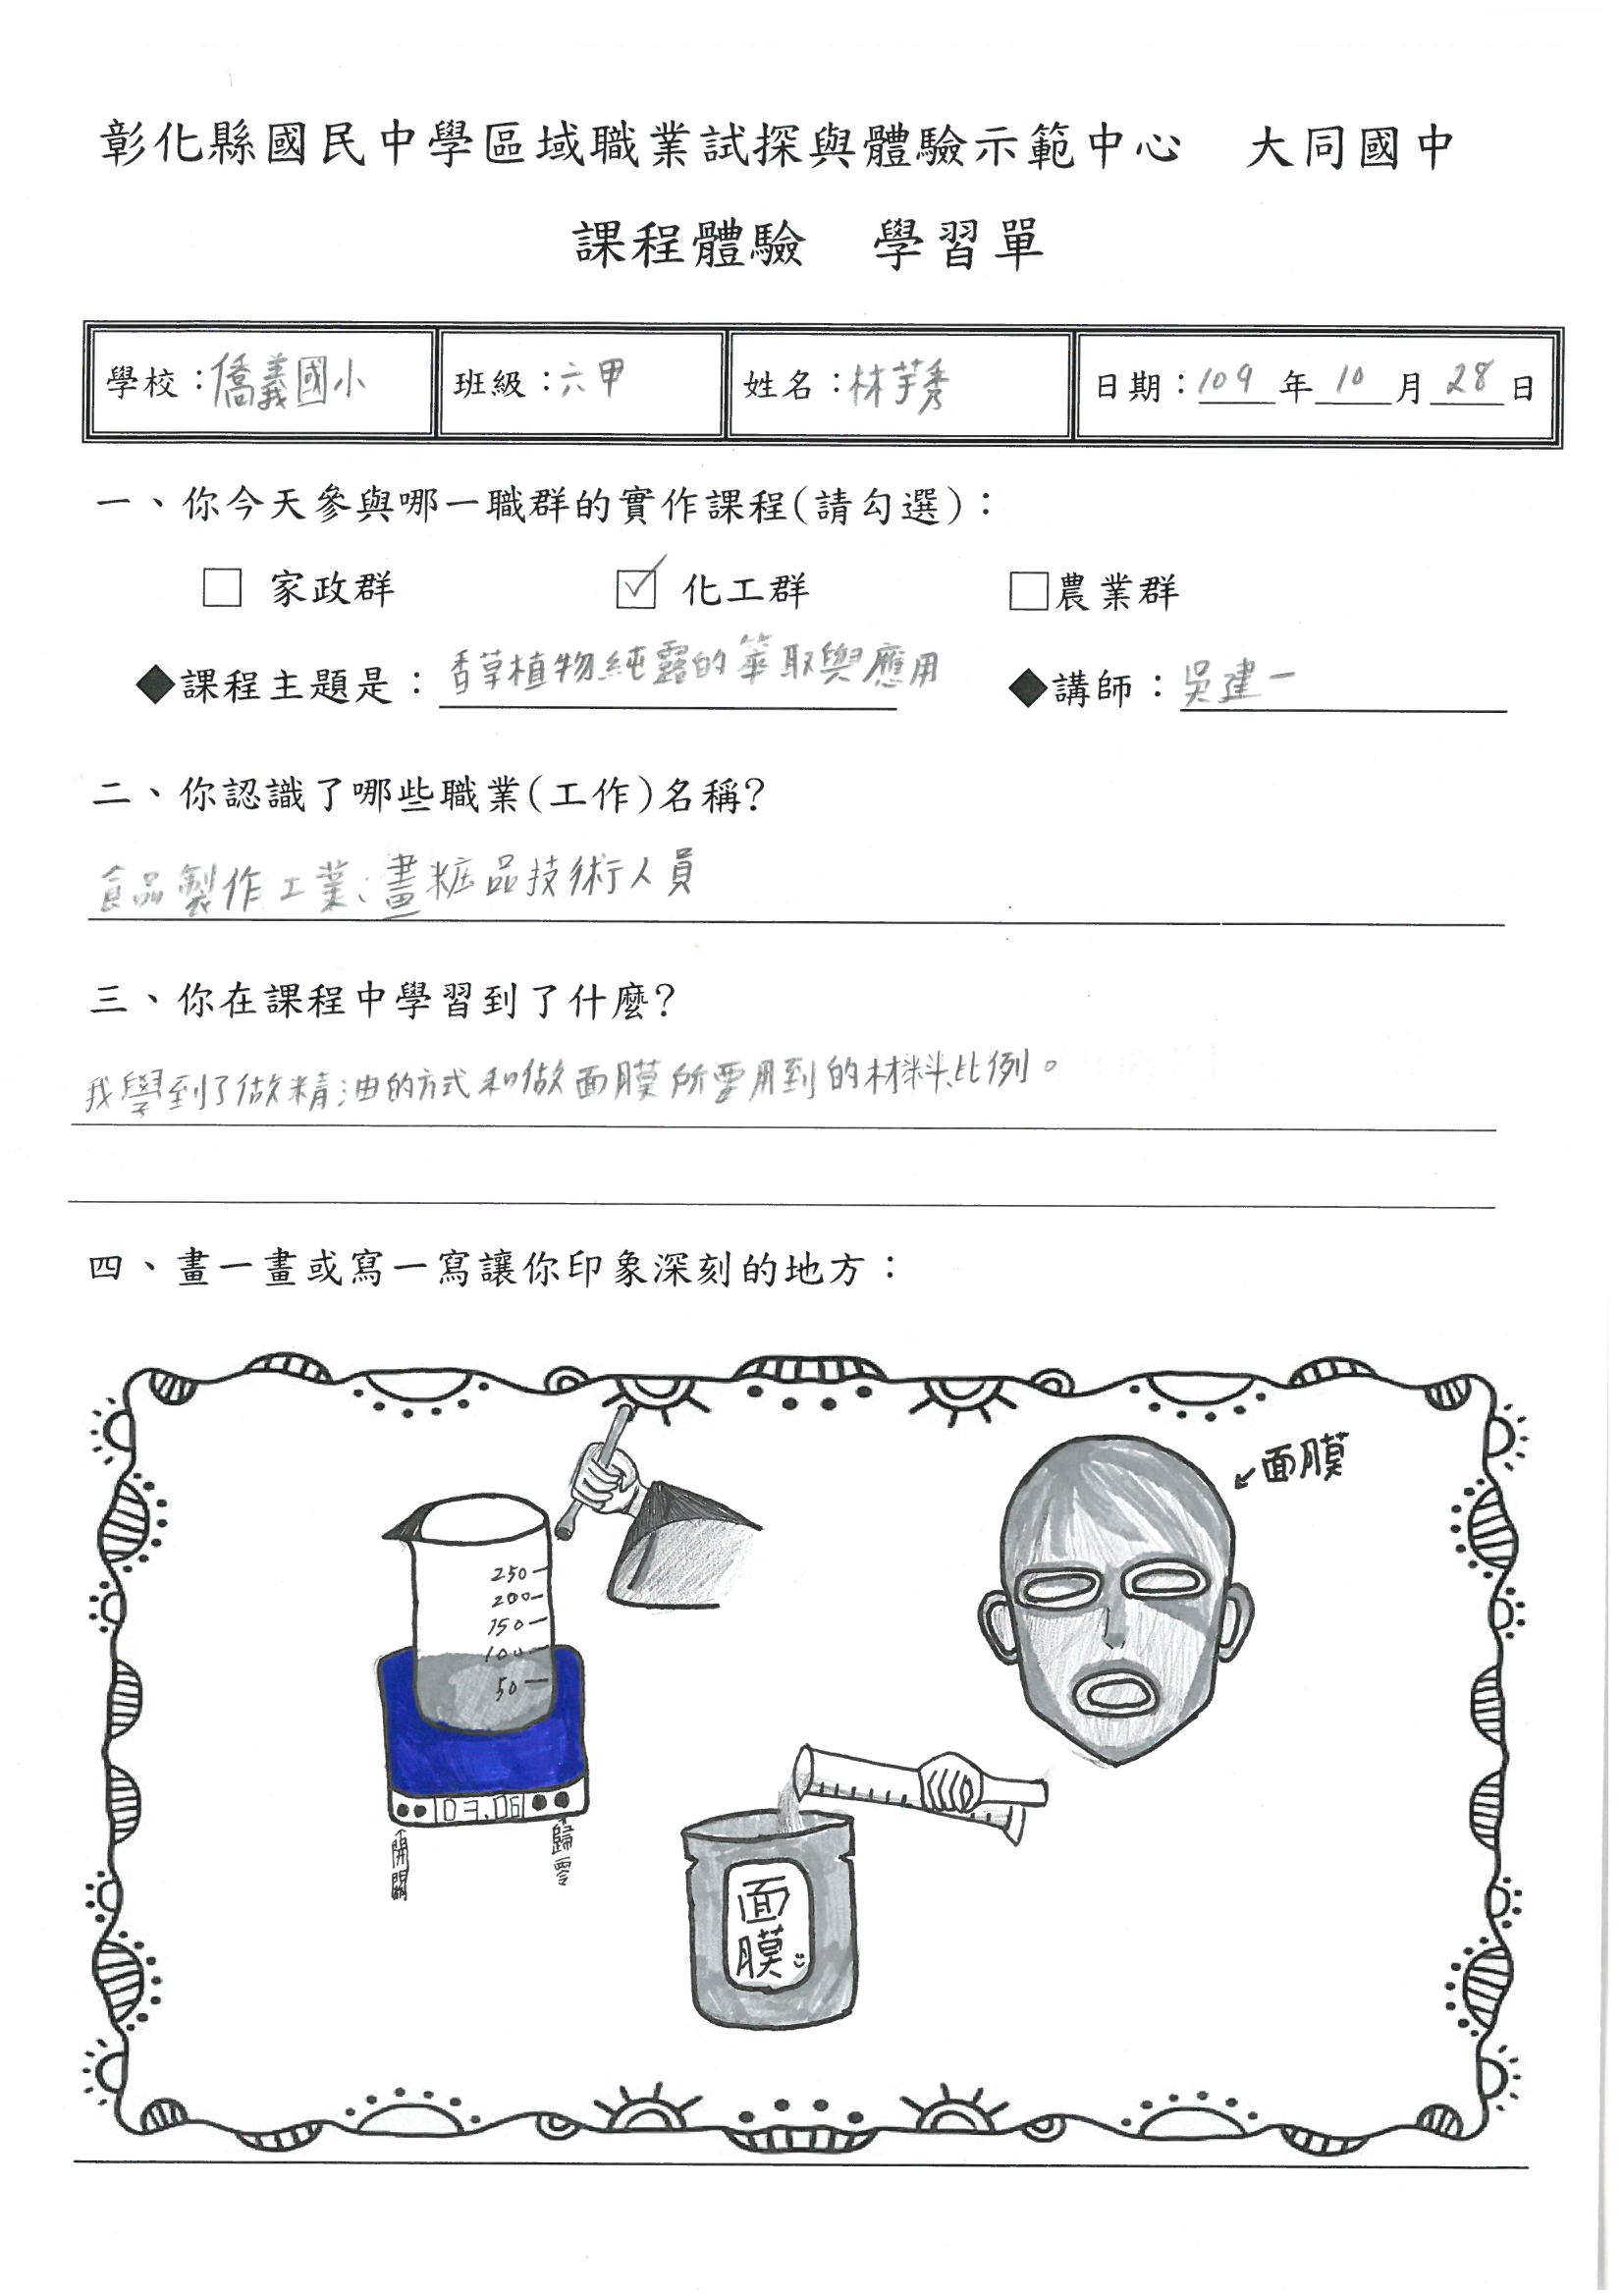 彰化縣國民中學區域職業試探與體驗示範中心 大同國中
課程體驗 學習單
學校：僑義國小 班級：六甲 姓名：林芋秀 日期：109年10月28日
一、你今天參與哪一職群的實作課程(請勾選)：
□ 家政群 ☑ 化工群 □農業群
◆課程主題是：香草植物純露的萃取與應用 ◆講師：吳建一
二、你認識了哪些職業(工作)名稱?
食品製作工業、畫粧品技術人員
三、你在課程中學習到了什麼?
我學到了做精油的方式和做面膜所要用到的材料、比例。
四、畫一畫或寫一寫讓你印象深刻的地方：
←面膜
250
200
150
100
50
03.06
開關
歸零
面膜